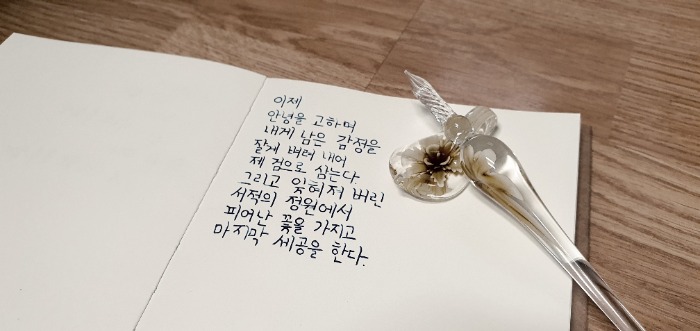 이제
안녕을 고하며
내게 남은 감정을
잘게 벼려 내어
제 검으로 삼는다
그리고 잊혀져 버린
서적의 정원에서
피어난 꽃을 가지고
마지막 세공을 한다.